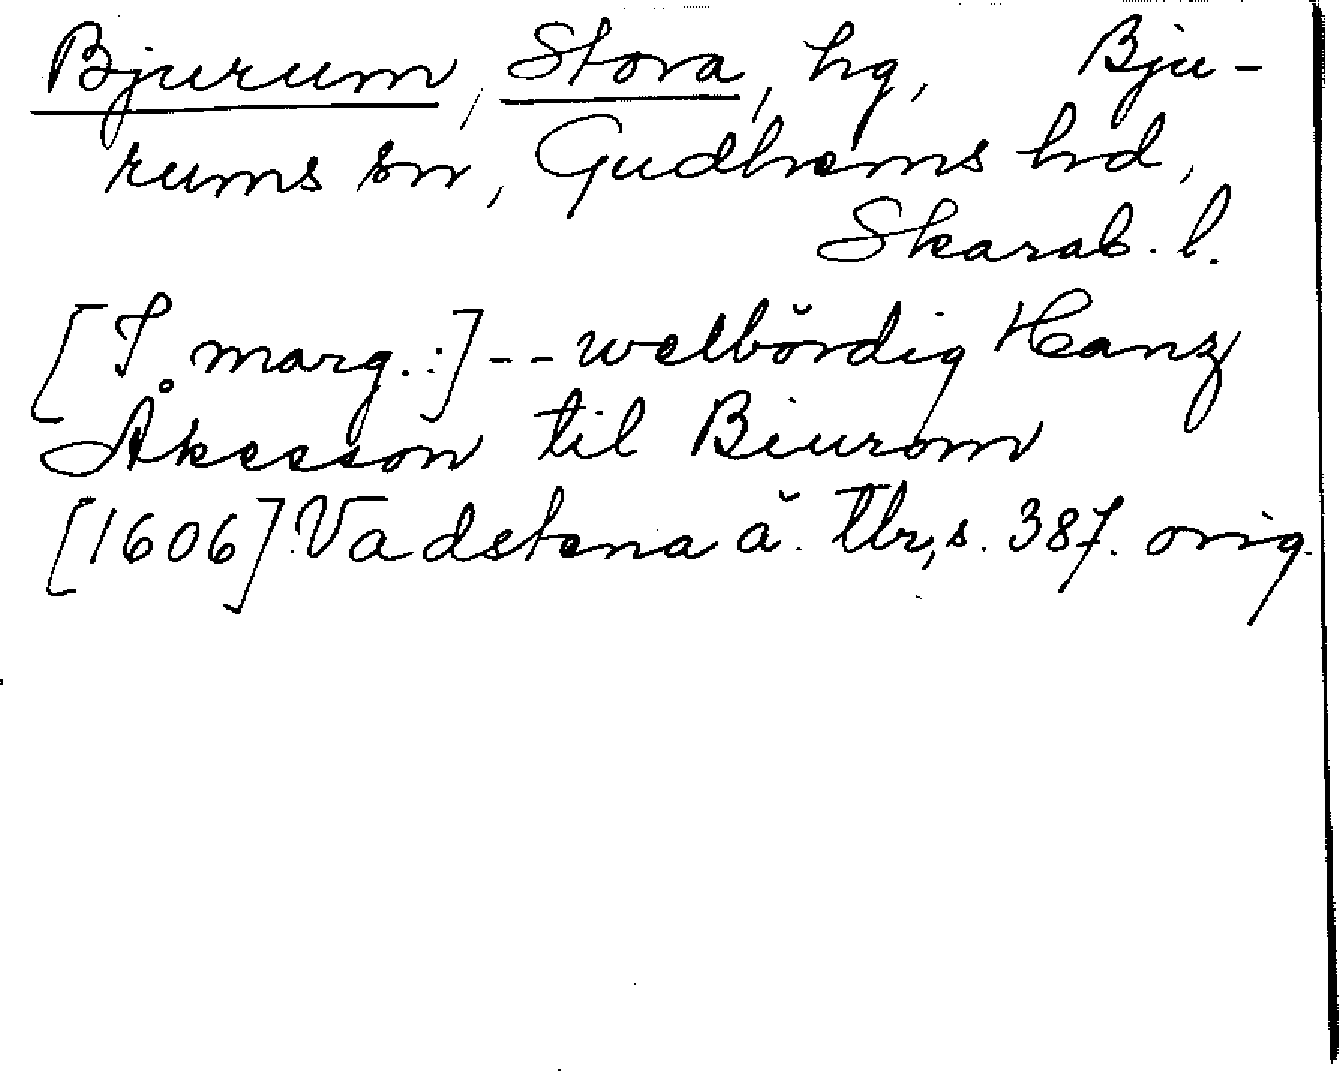 Bjurum, Stora, hg, Bju-
rums sn, Gudhems hd,
Skarab. l.
[I marg.:] -- welbördig Hanz
Åkesson til Biurom
[1606] Vadstena ä. Tbr, s. 387. orig.